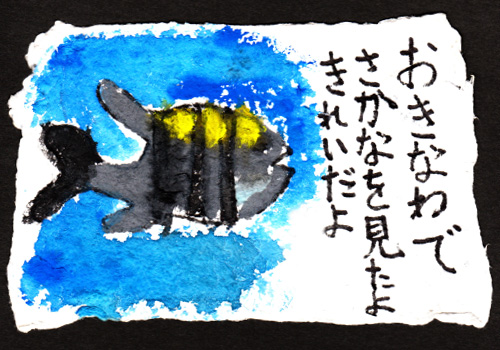 おきなわで
さかなを見たよ
きれいだよ